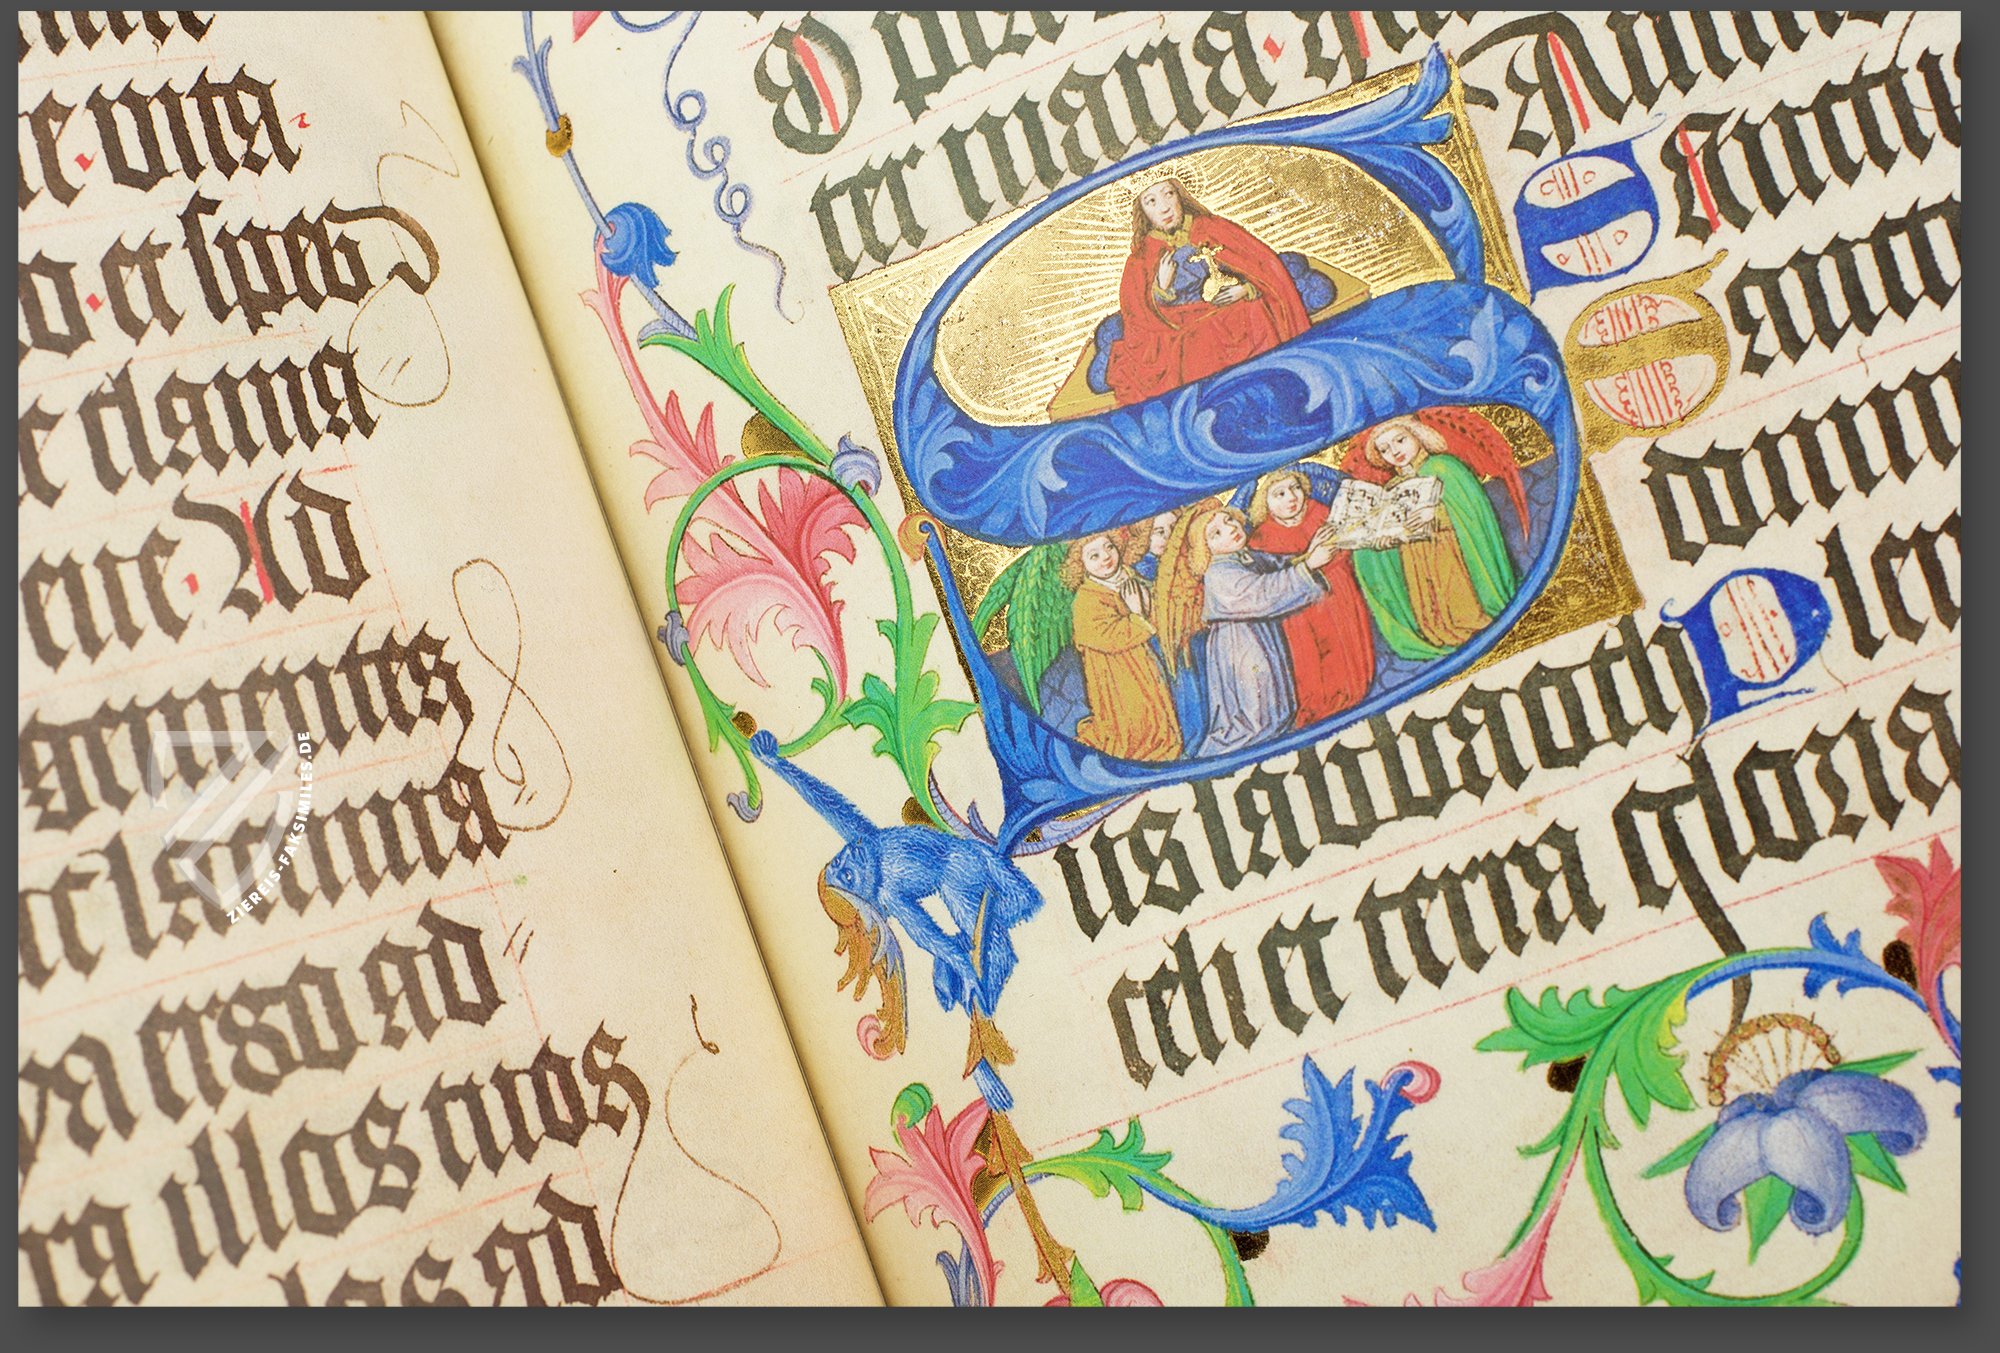 e·vita·
o·et spes
e clama
eue·Ad
gementes
ac lacrima
ya ergo ad
ra illos tuos
los ad
O pia
ter maria·
S
Sanctus
Sanctu
domin
us sabbaoth Plen
celi et terra gloria
ZIEREIS-FAKSIMILES.DE